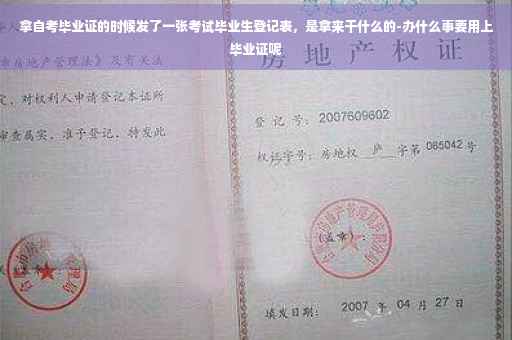 拿自考毕业证的时候发了一张考试毕业生登记表，是拿来干什么的-办什么事要用上
毕业证呢
房地产管理法》及有关法
定，对权利人申请登记本证所
审查属实，准予登记，特发此
登 记 号：2007609602
权证字号：房地权 庐 字第 065042 号
房地产管理局
(盖章)：
填发日期： 2007 年 04 月 27 日